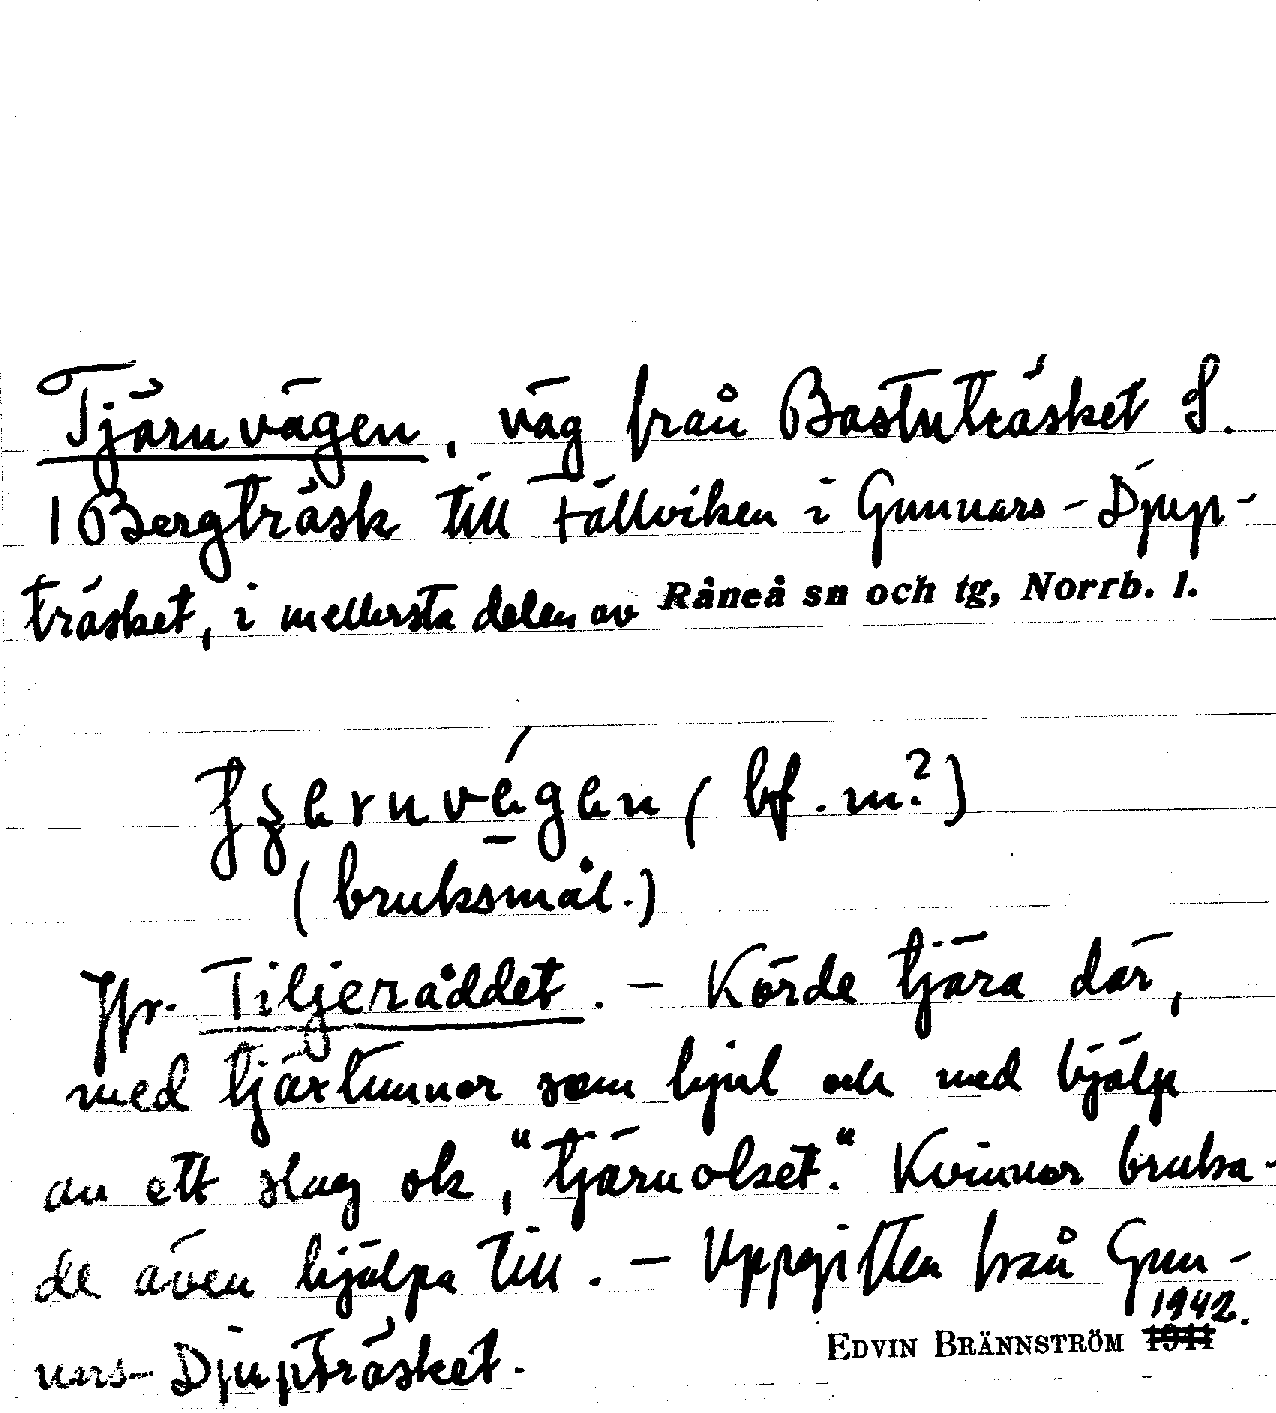 Tjärnvägen, väg från Bastuträsket S.
i Bergträsk till Fällviken i Gunnars-Djup-
träsket, i mellersta delen av Råneå sn och tg, Norrb. l.
(bf. m.?)
(bruksmål.)
Jfr. Tiljeråddet. – Körde tjära där,
med tjärtunnor som hjul och med hjälp
av ett slag ok, "tjärnoket". Kvinnor bruka-
de även hjälpa till. – Uppgiften från Gun-
nars-Djupträsket.
EDVIN BRÄNNSTRÖM 1942.